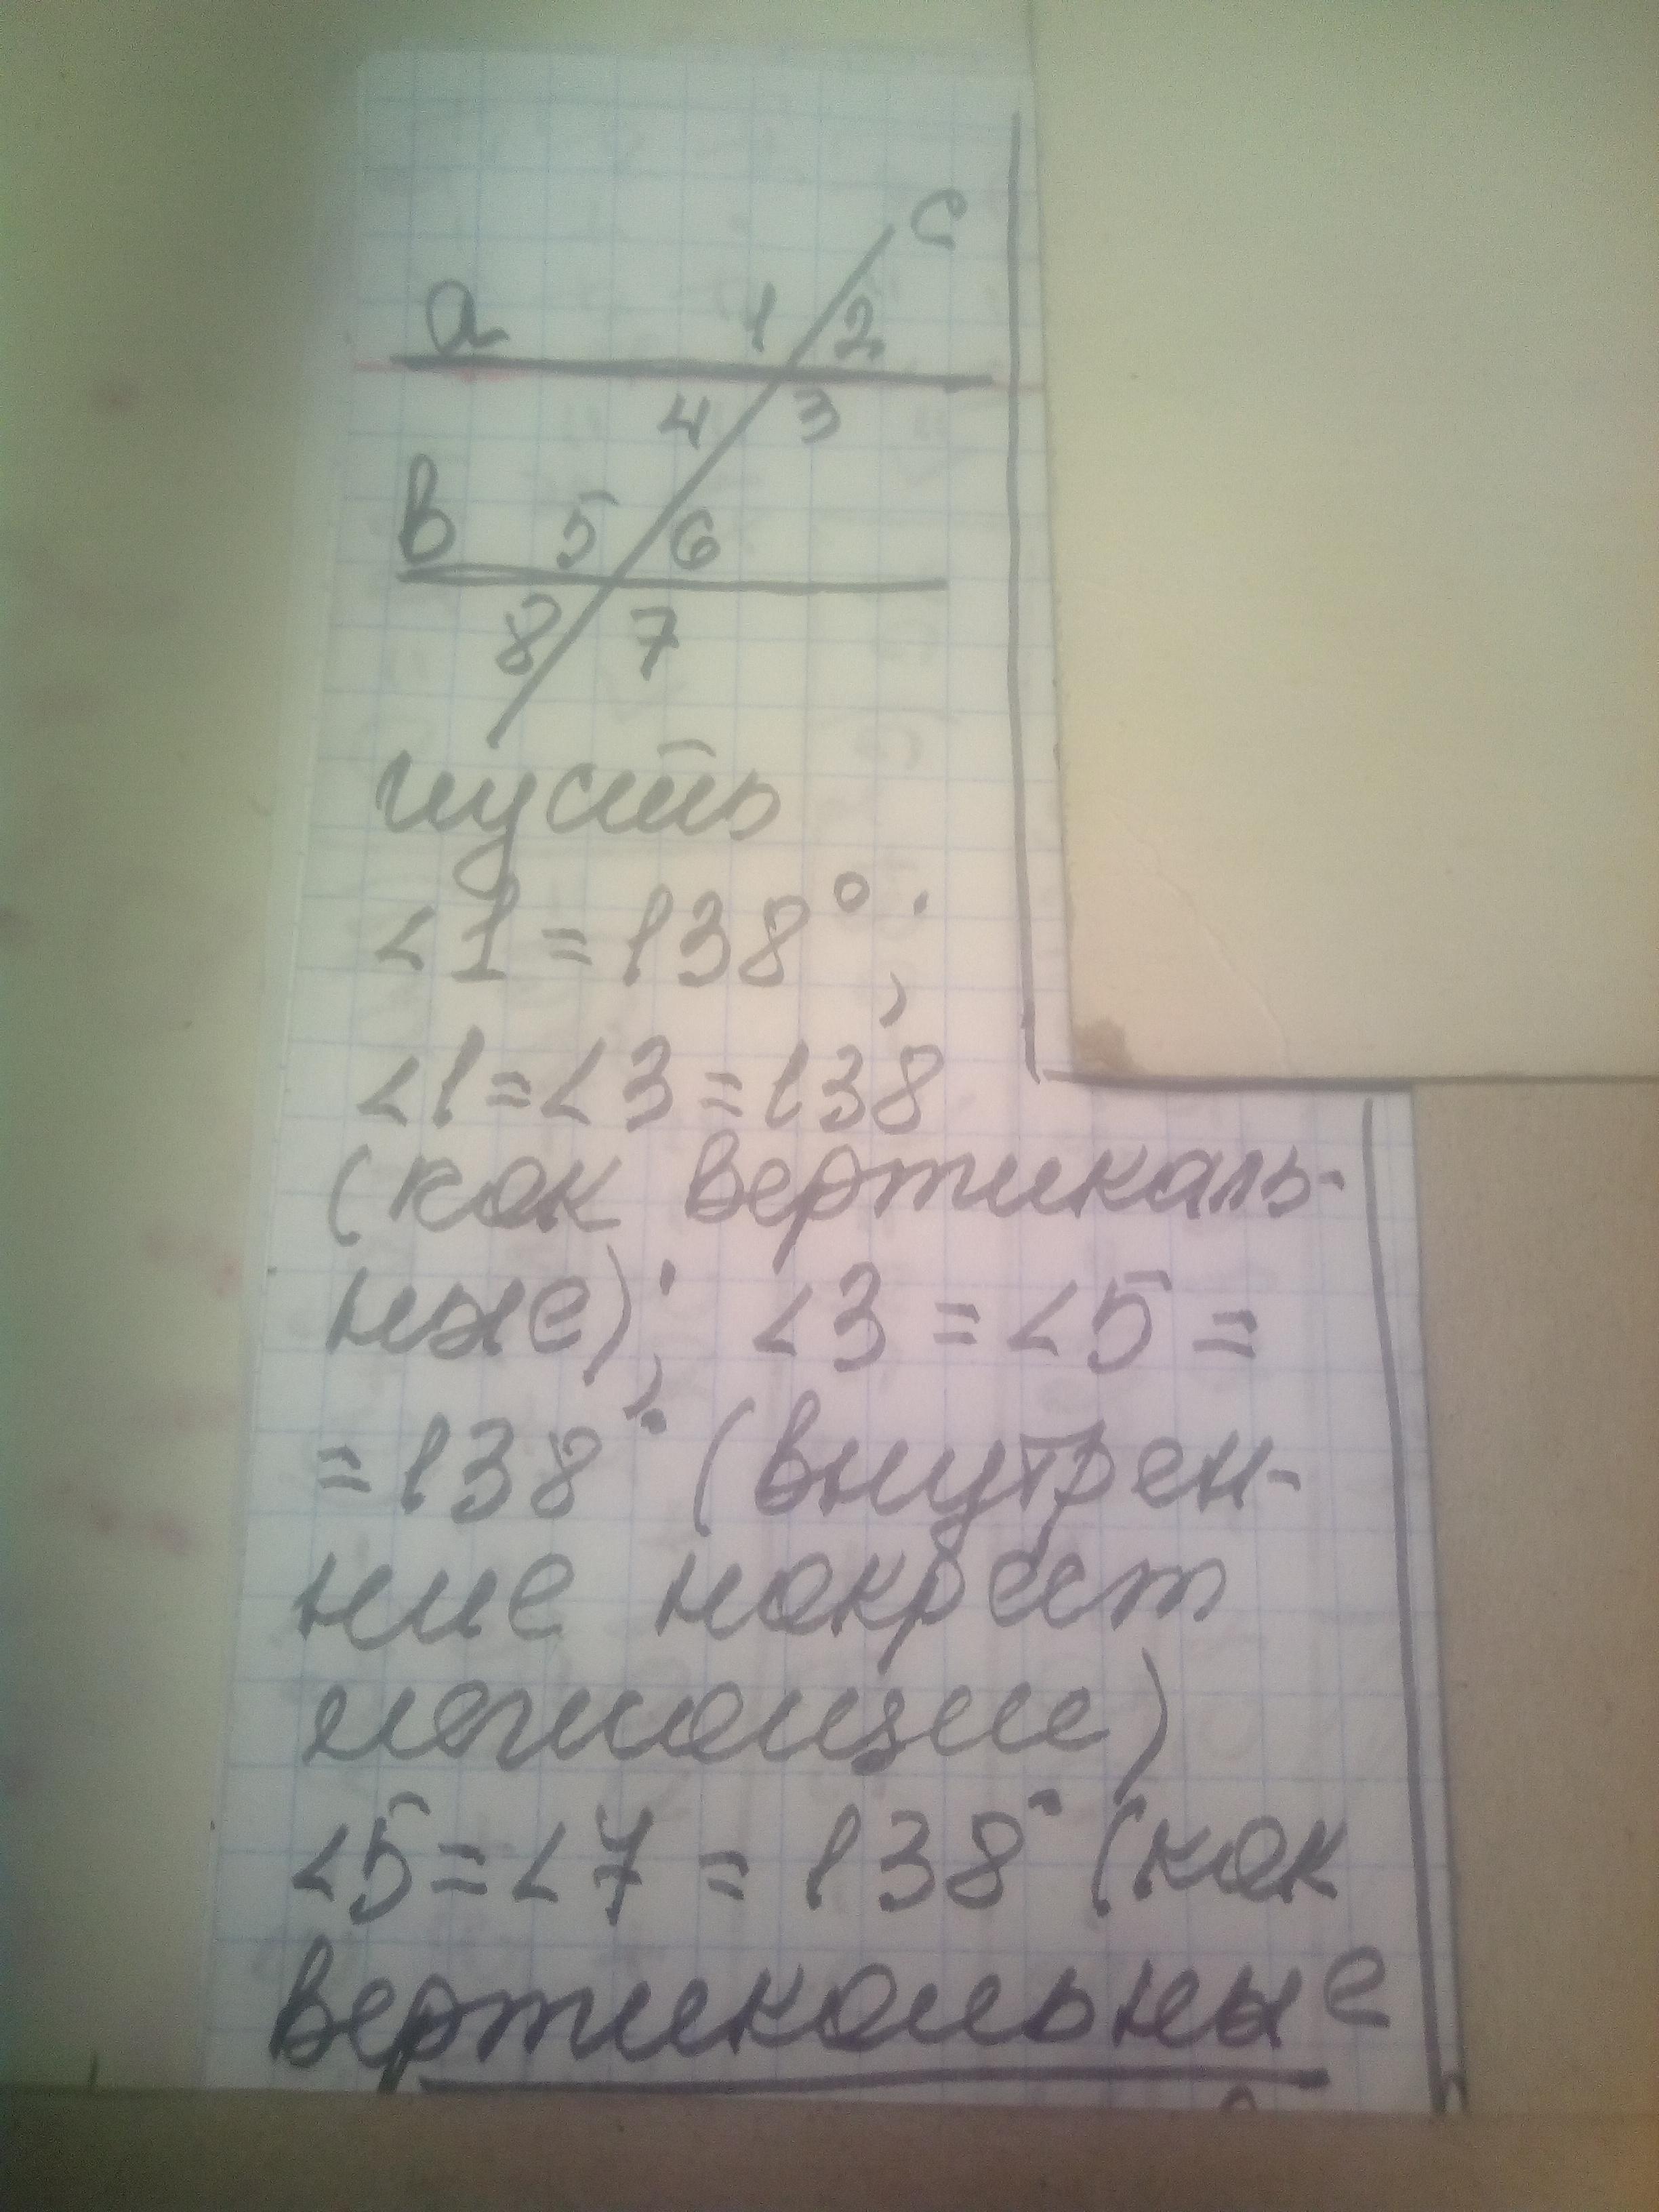 c
a 1 2
4 3
в 5 6
8 7
пусть
∠1 = 138°;
∠1 = ∠3 = 138
(как вертикаль-
ные); ∠3 = ∠5 =
= 138° (внутрен-
ние накрест
лежащие)
∠5 = ∠7 = 138° (как
вертикальные